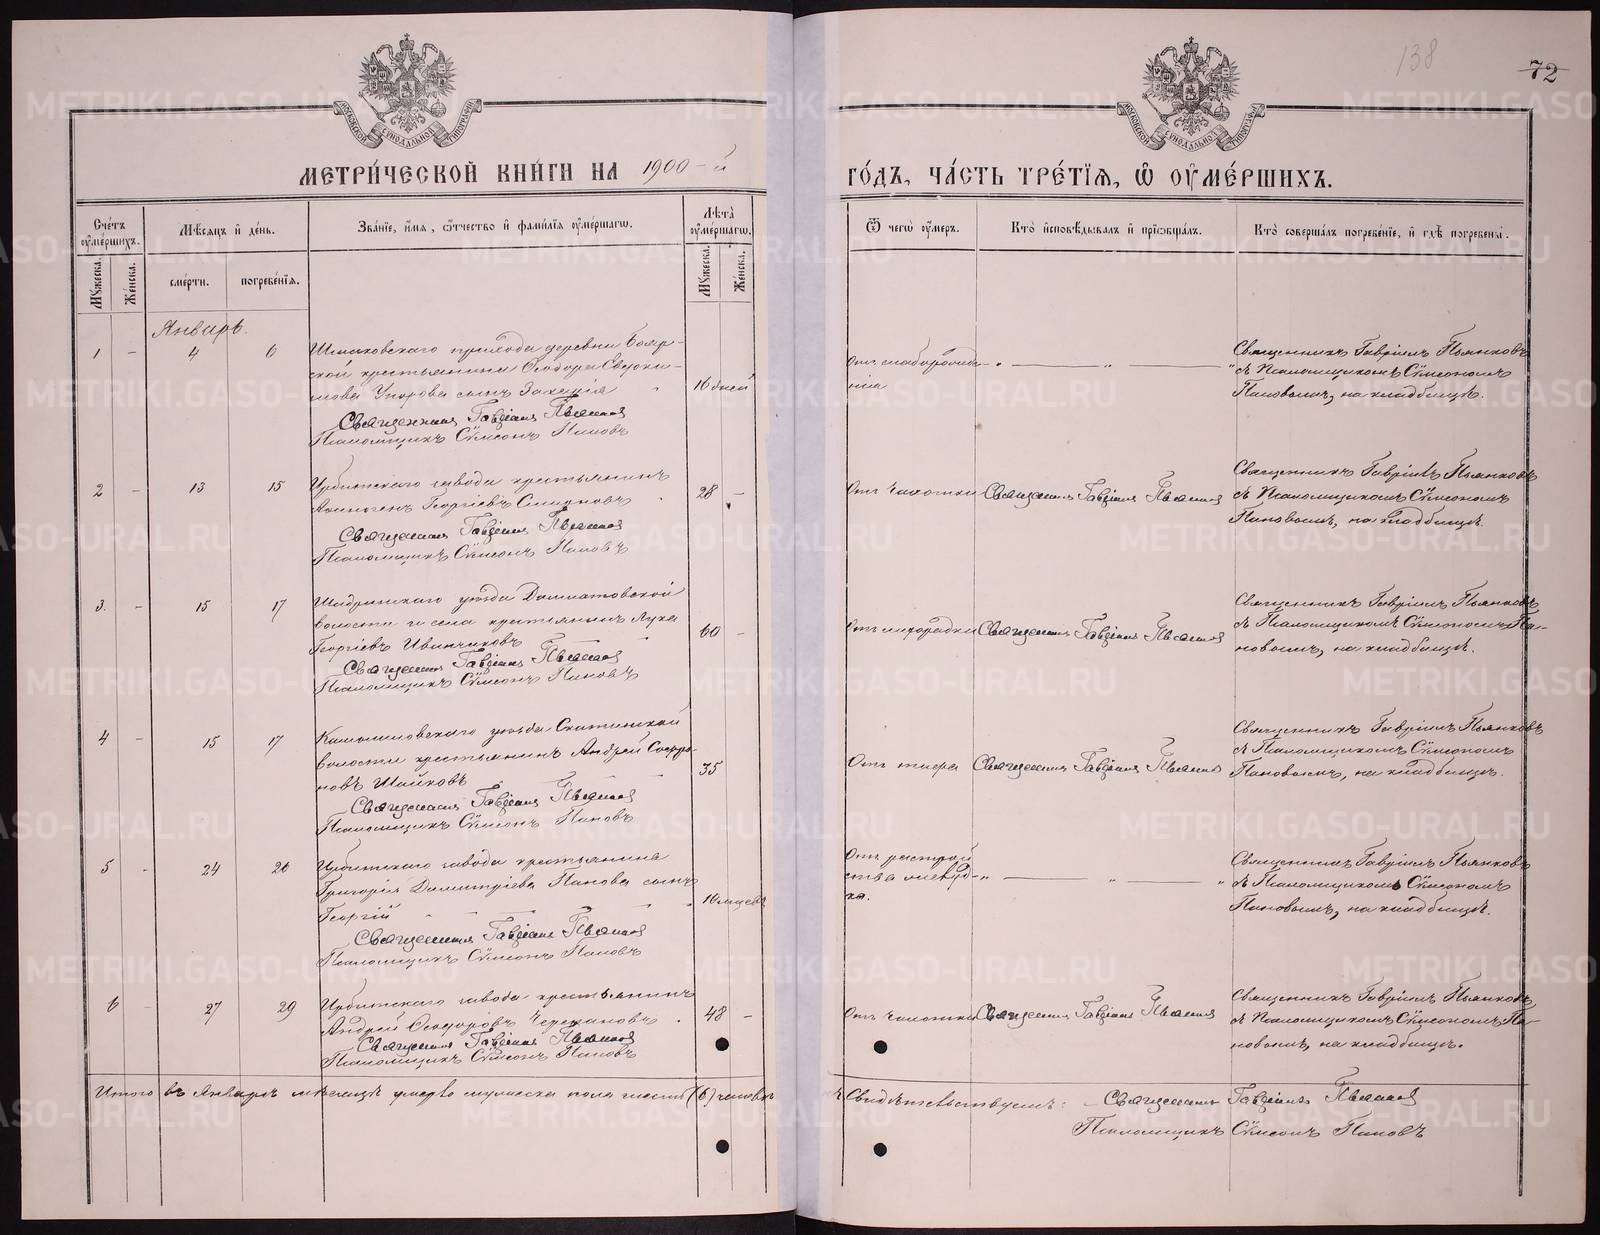 138
72
МЕТРИ́ЧЕСКОЙ КНИ́ГИ НА 1900-й
ГО́ДЪ, ЧА́СТЬ ТРЕ́ТІЯ, Ѡ ОУМЕ́РШИХЪ.
Сче́тъ оумершихъ.
Мѣсяцъ и день.
Зва́ніе, имя, отчество и фами́лія оуме́ршагѡ.
Лѣта̀ оуме́ршагѡ.
Ѿ чегѡ̀ оумеръ.
Кто̀ исповѣдывалъ и пріобщалъ.
Кто̀ совершалъ погребе́ніе, и гдѣ погребены̀.
Мужеска.
Женска.
смерти.
погребе́нія.
Мужеска.
Женска.
Январь.
1 - 4 6
деревни Бояр-
ской крестьянина Ѳеодора
сынъ Захарія
16 дней
Священникъ Гавріилъ Пьянковъ
Псаломщикъ Сѵмеонъ Пановъ
Отъ слаборожде-
нія
Священникъ Гавріилъ Пьянковъ
съ Псаломщикомъ Сѵмеономъ
Пановымъ, на кладбищѣ.
2 - 13 15
Ирбитскаго завода крестьянинъ
Георгіевъ Смирновъ
28 -
Священникъ Гавріилъ Пьянковъ
Псаломщикъ Сѵмеонъ Пановъ
Отъ чахотки
Священникъ Гавріилъ Пьянковъ
Священникъ Гавріилъ Пьянковъ
съ Псаломщикомъ Сѵмеономъ
Пановымъ, на кладбищѣ.
3. - 15 17
Шадринскаго уѣзда Далматовской
волости и села крестьянинъ Лука
Георгіевъ Иванчиковъ
60 -
Священникъ Гавріилъ Пьянковъ
Псаломщикъ Сѵмеонъ Пановъ
Отъ лихорадки
Священникъ Гавріилъ Пьянковъ
Священникъ Гавріилъ Пьянковъ
съ Псаломщикомъ Сѵмеономъ Па-
новымъ, на кладбищѣ.
4 - 15 17
Камышловскаго уѣзда Скатинской
волости крестьянинъ Андрей Софро-
новъ Шайковъ
35
Священникъ Гавріилъ Пьянковъ
Псаломщикъ Сѵмеонъ Пановъ
Отъ тифа
Священникъ Гавріилъ Пьянковъ
Священникъ Гавріилъ Пьянковъ
съ Псаломщикомъ Сѵмеономъ
Пановымъ, на кладбищѣ.
5 - 24 26
Ирбитскаго завода крестьянина
Григорія Димитріева Панова сынъ
Георгій
10 месяцевъ
Священникъ Гавріилъ Пьянковъ
Псаломщикъ Сѵмеонъ Пановъ
Отъ растрой
ства желуд-
ка.
Священникъ Гавріилъ Пьянковъ
съ Псаломщикомъ Сѵмеономъ
Пановымъ, на кладбищѣ.
6 - 27 29
Ирбитскаго завода крестьянинъ
Андрей Ѳеодоровъ Черепановъ
48 -
Священникъ Гавріилъ Пьянковъ
Псаломщикъ Сѵмеонъ Пановъ
Отъ чахотки
Священникъ Гавріилъ Пьянковъ
Священникъ Гавріилъ Пьянковъ
съ Псаломщикомъ Сѵмеономъ Па-
новымъ, на кладбищѣ.
Итого въ Январѣ мѣсяцѣ умерло мужеска пола шесть (6) человѣкъ
Свидѣтельствуемъ: Священникъ Гавріилъ Пьянковъ
Псаломщикъ Сѵмеонъ Пановъ
METRIKI.GASO-URAL.RU